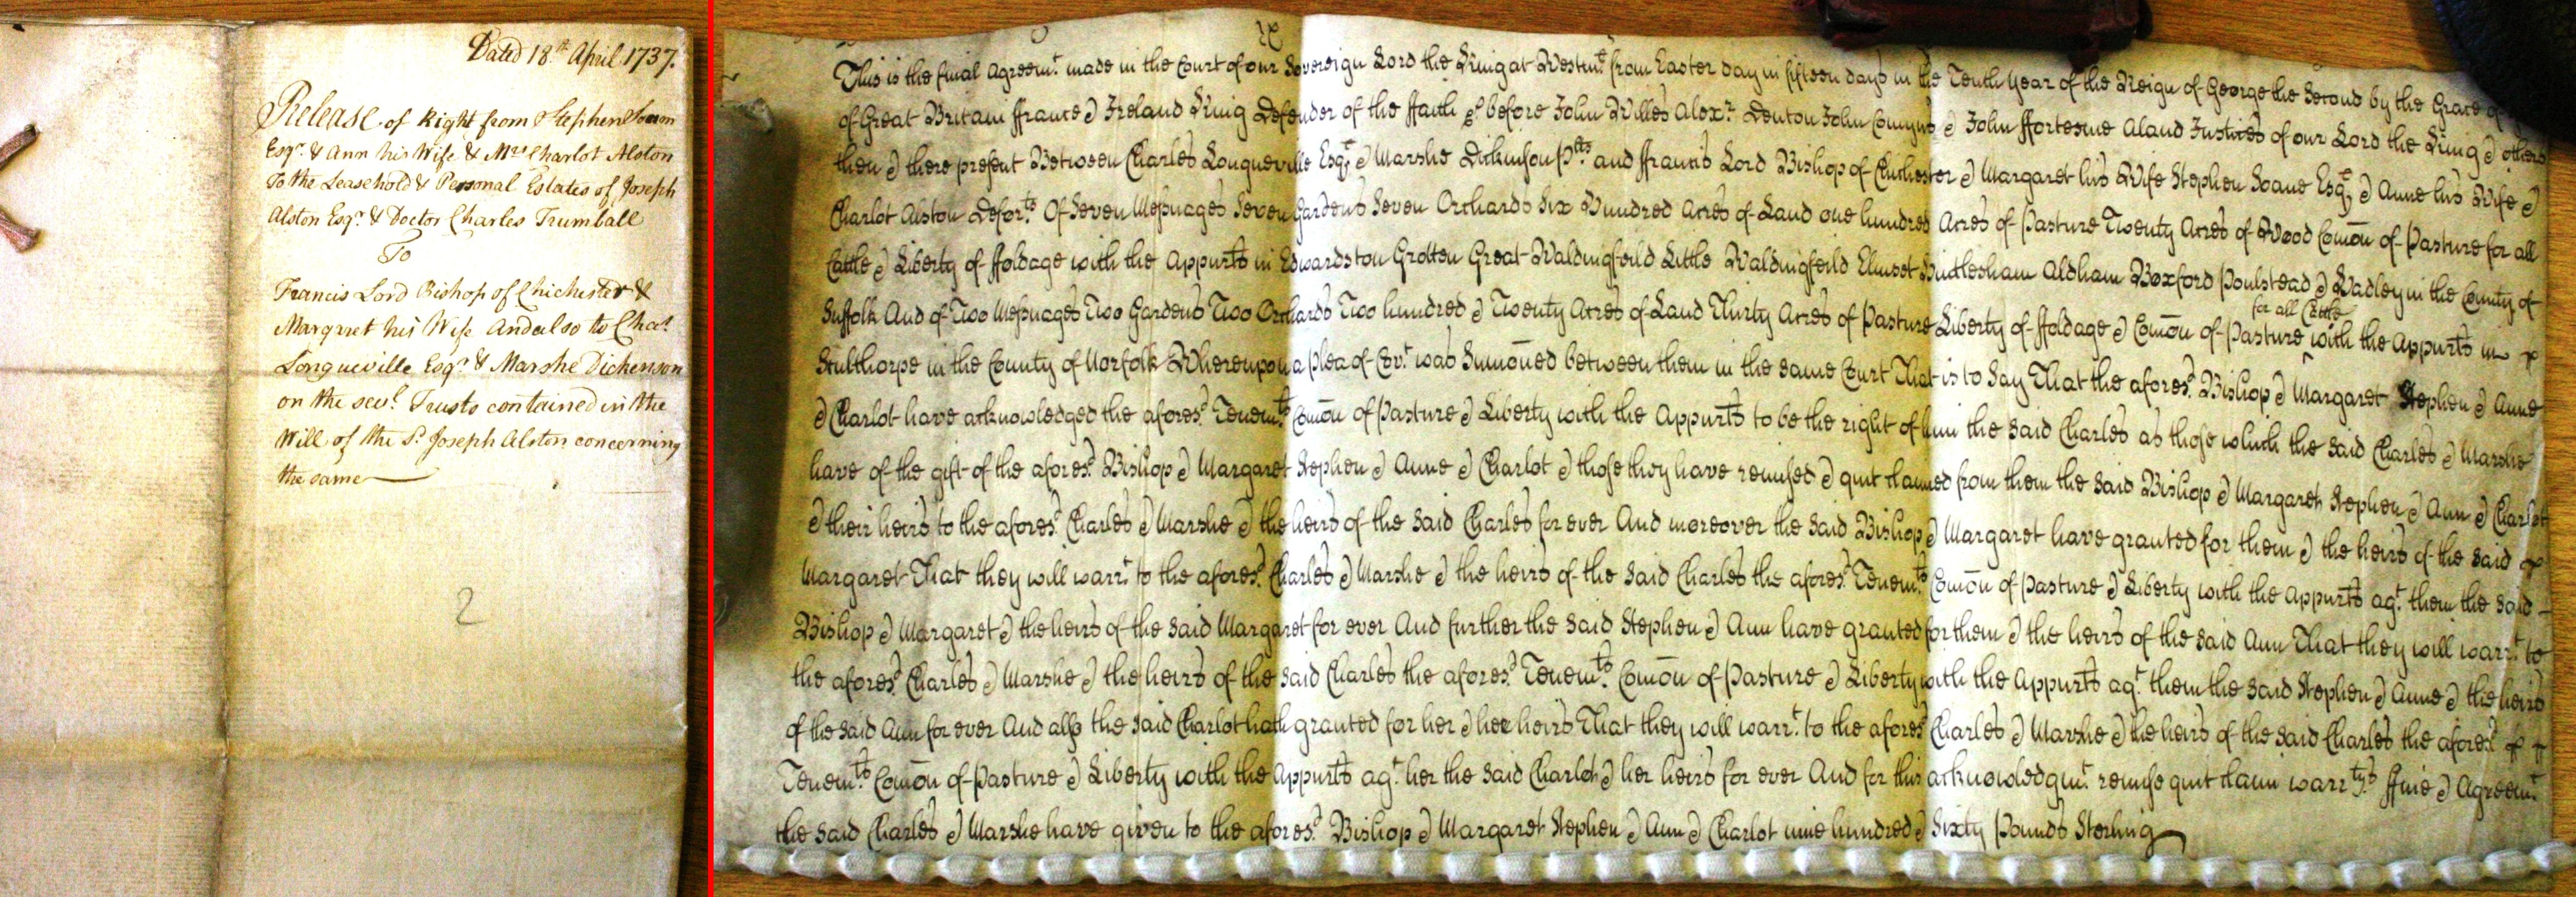 Dated 18th April 1737.
Release of Right from Stephen Soam
Esqr. & Ann his Wife & Mrs Charlot Alston
To the Leasehold & Personal Estates of Joseph
Alston Esqr. & Doctor Charles Trumball
To
Francis Lord Bishop of Chichester &
Margaret his Wife And also to Chas.
Longueville Esqr. & Marshe Dickenson
on the sevl. Trusts contained in the
Will of the Sd. Joseph Alston concerning
the same
2
This is the final Agreemt. made in the Court of our Sovereign Lord the King at Westmr. from Easter day in fifteen days in the Tenth Year of the Reign of George the Second by the Grace of
of Great Britain ffrance & Ireland King Defender of the ffaith &c before John Willes Alexr. Denton John Comyns & John ffortescue Aland Justices of our Lord the King & others
then & there present Between Charles Longueville Esqr. & Marshe Dickinson Plts. and ffrancis Lord Bishop of Chichester & Margaret his Wife Stephen Soane Esqr. & Anne his Wife &
Charlot Alston Deforts. Of Seven Messuages Seven Gardens Seven Orchards Six Hundred Acres of Land one hundred Acres of Pasture Twenty Acres of Wood Comon of Pasture for all
Cattle & Liberty of ffoldage with the Appurts in Edwardston Grotten Great Waldingfeild Little Waldingfeild Elmset Hintlesham Aldham Boxford Poulstead & Hadley in the County of
Suffolk And of Two Messuages Two Gardens Two Orchards Two hundred & Twenty Acres of Land Thirty Acres of Pasture Liberty of ffoldage & Comon of Pasture for all Cattle with the Appurts in
Stulthorpe in the County of Norfolk Whereupon a plea of Covt. was Sumoned between them in the same Court That is to Say That the aforesd. Bishop & Margaret Stephen & Anne
& Charlot have acknowledged the aforesd. Tenemts. Comon of Pasture & Liberty with the Appurts to be the right of him the said Charles as those which the said Charles & Marshe
have of the gift of the aforesd. Bishop & Margaret Stephen & Anne & Charlot & those they have remised & quit claimed from them the said Bishop & Margaret Stephen & Ann & Charlot
& their heirs to the aforesd. Charles & Marshe & the heirs of the said Charles for ever And moreover the said Bishop & Margaret have granted for them & the heirs of the said
Margaret That they will warrt. to the aforesd. Charles & Marshe & the heirs of the said Charles the aforesd. Tenemts. Comon of Pasture & Liberty with the Appurts agt. them the said
Bishop & Margaret & the heirs of the said Margaret for ever And further the said Stephen & Ann have granted for them & the heirs of the said Ann That they will warrt. to
the aforesd. Charles & Marshe & the heirs of the said Charles the aforesd. Tenemts. Comon of Pasture & Liberty with the Appurts agt. them the said Stephen & Anne & the heirs
of the said Ann for ever And also the said Charlot hath granted for her & her heirs That they will warrt. to the aforesd. Charles & Marshe & the heirs of the said Charles the aforesd.
Tenemts. Comon of Pasture & Liberty with the Appurts agt. her the said Charlot & her heirs for ever And for this acknowledgmt. remise quit claim warrtys. ffine & Agreemt.
the said Charles & Marshe have given to the aforesd. Bishop & Margaret Stephen & Ann & Charlot nine hundred & Sixty Pounds Sterling